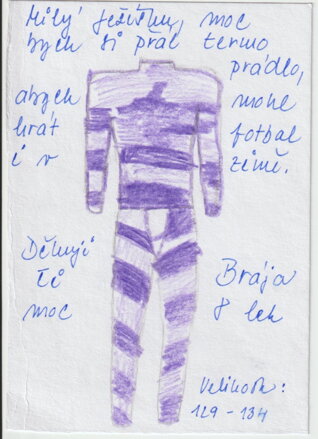 Milý Ježíšku, moc
bych si přál termo
prádlo,
abych mohl
hrát fotbal
i v zimě.
Děkuji
Ti
moc
Brája
8 let
Velikost:
129 - 134